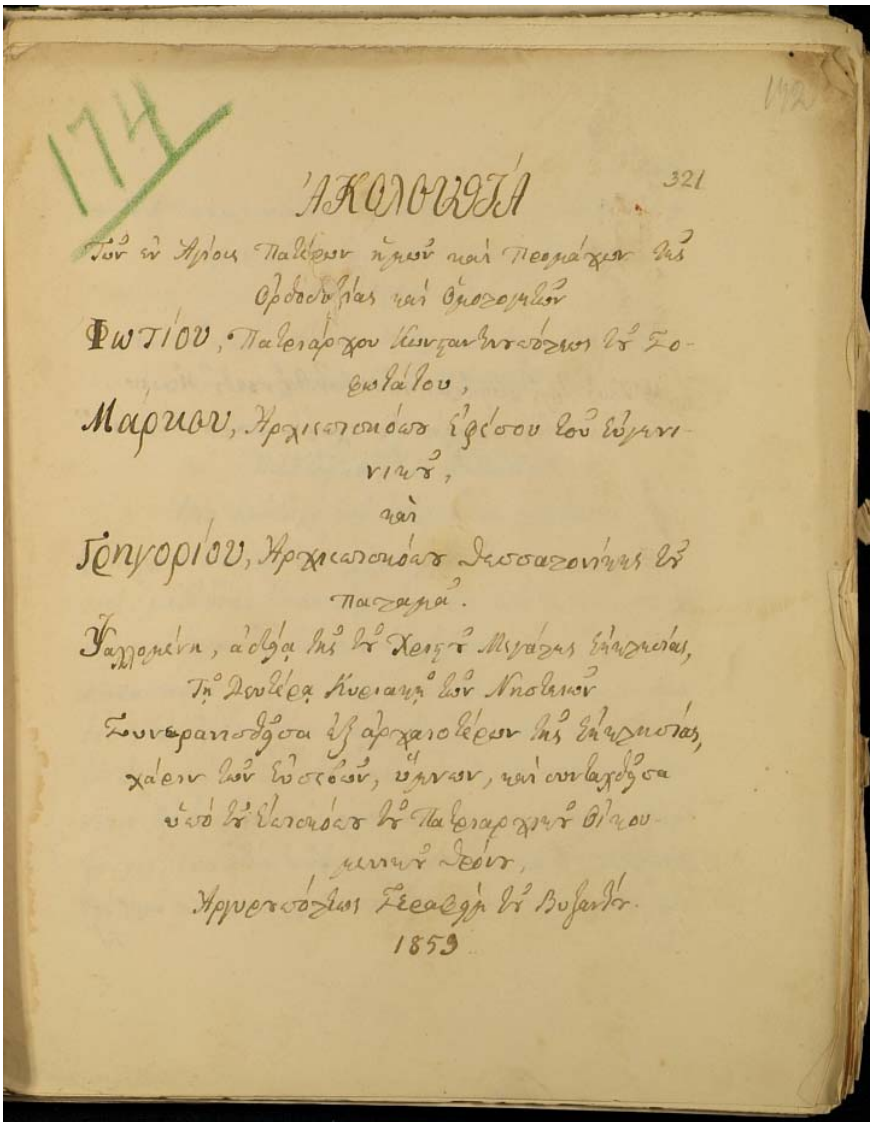 174
142
321
ἈΚΟΛΟΥΘΊΑ
Τῶν ἐν Ἁγίοις Πατέρων ἡμῶν καὶ Προμάχων τῆς
Ὀρθοδοξίας καὶ Ὁμολογητῶν
Φωτίου, Πατριάρχου Κωνϛαντινȣπόλεως τȣ͂ Σο-
φωτάτου,
Μάρκου, Ἀρχιεπισκόπȣ Ἐφέσου τοῦ Εὐγενι-
νικȣ͂,
καὶ
Γρηγορίου, Ἀρχιεπισκόπȣ Θεσσαλονίκης τȣ͂
Παλαμᾶ.
Ψαλλομένη, ἀδείᾳ τῆς τȣ͂ Χριϛȣ͂ Μεγάλης Ἐκκλησίας,
Τῇ Δευτέρᾳ Κυριακῇ τῶν Νηστειῶν
Συνερανισθεῖσα ἐξ ἀρχαιοτέρων τῆς Ἐκκλησίας,
χάριν τῶν Εὐσεβῶν, ὕμνων, καὶ συνταχθεῖσα
ὑπό τȣ͂ Ἐπισκόπȣ τȣ͂ Πατριαρχικȣ͂ Οἰκου-
μενικȣ͂ Θρόνȣ,
Ἀργυρȣπόλεως Σεραφεὶμ τȣ͂ Βυζαντίȣ.
1859